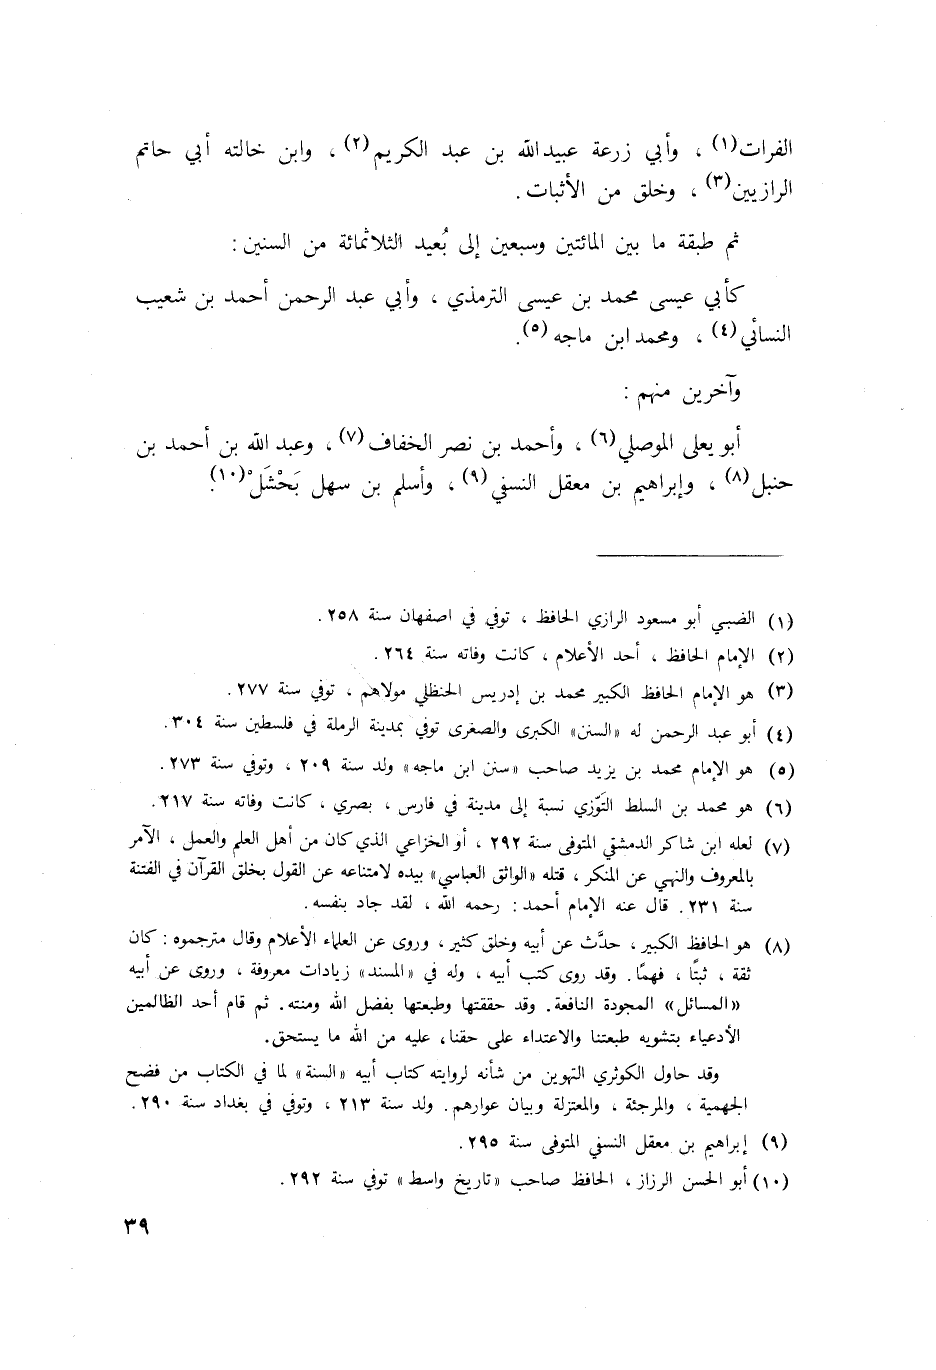 الفرات(١) ، وأبي زرعة عبيدالله بن عبد الكريم(٢) ، وابن خالته أبي حاتم
الرازيين(٣) ، وخلق من الأثبات .
ثم طبقة ما بين المائتين وسبعين إلى بُعيد الثلاثمائة من السنين :
كأبي عيسى محمد بن عيسى الترمذي ، وأبي عبد الرحمن أحمد بن شعيب
النسائي(٤) ، ومحمد ابن ماجه(٥).
وآخرين منهم :
أبو يعلى الموصلي(٦) ، وأحمد بن نصر الخفاف(٧) ، وعبد الله بن أحمد بن
حنبل(٨) ، وإبراهيم بن معقل النسفي(٩) ، وأسلم بن سهل بَحْشَلْ(١٠).
(١) الضبي أبو مسعود الرازي الحافظ ، توفي في اصفهان سنة ٢٥٨ .
(٢) الإمام الحافظ ، أحد الأعلام ، كانت وفاته سنة ٢٦٤ .
(٣) هو الإمام الحافظ الكبير محمد بن إدريس الحنظلي مولاهم ، توفي سنة ٢٧٧ .
(٤) أبو عبد الرحمن له «السنن» الكبرى والصغرى توفي بمدينة الرملة في فلسطين سنة ٣٠٤ .
(٥) هو الإمام محمد بن يزيد صاحب «سنن ابن ماجه» ولد سنة ٢٠٩ ، وتوفي سنة ٢٧٣ .
(٦) هو محمد بن السلط التَوّزي نسبة إلى مدينة في فارس ، بصري ، كانت وفاته سنة ٢١٧ .
(٧) لعله ابن شاكر الدمشقي المتوفى سنة ٢٩٢ ، أو الخزاعي الذي كان من أهل العلم والعمل ، الآمر
بالمعروف والنهي عن المنكر ، قتله «الواثق العباسي» بيده لامتناعه عن القول بخلق القرآن في الفتنة
سنة ٢٣١ . قال عنه الإمام أحمد : رحمه الله ، لقد جاد بنفسه .
(٨) هو الحافظ الكبير ، حدَّث عن أبيه وخلق كثير ، وروى عن العلماء الأعلام وقال مترجموه : كان
ثقة ، ثبتًا ، فهمًا . وقد روى كتب أبيه ، وله في «المسند» زيادات معروفة ، وروى عن أبيه
«المسائل» المجودة النافعة . وقد حققتها وطبعتها بفضل الله ومنته . ثم قام أحد الظالمين
الأدعياء بتشويه طبعتنا والاعتداء على حقنا ، عليه من الله ما يستحق .
وقد حاول الكوثري التهوين من شأنه لروايته كتاب أبيه «السنة» لما في الكتاب من فضح
الجهمية ، والمرجئة ، والمعتزلة وبيان عوارهم . ولد سنة ٢١٣ ، وتوفي في بغداد سنة ٢٩٠ .
(٩) إبراهيم بن معقل النسفي المتوفى سنة ٢٩٥ .
(١٠) أبو الحسن الرزاز ، الحافظ صاحب «تاريخ واسط» توفي سنة ٢٩٢ .
٣٩